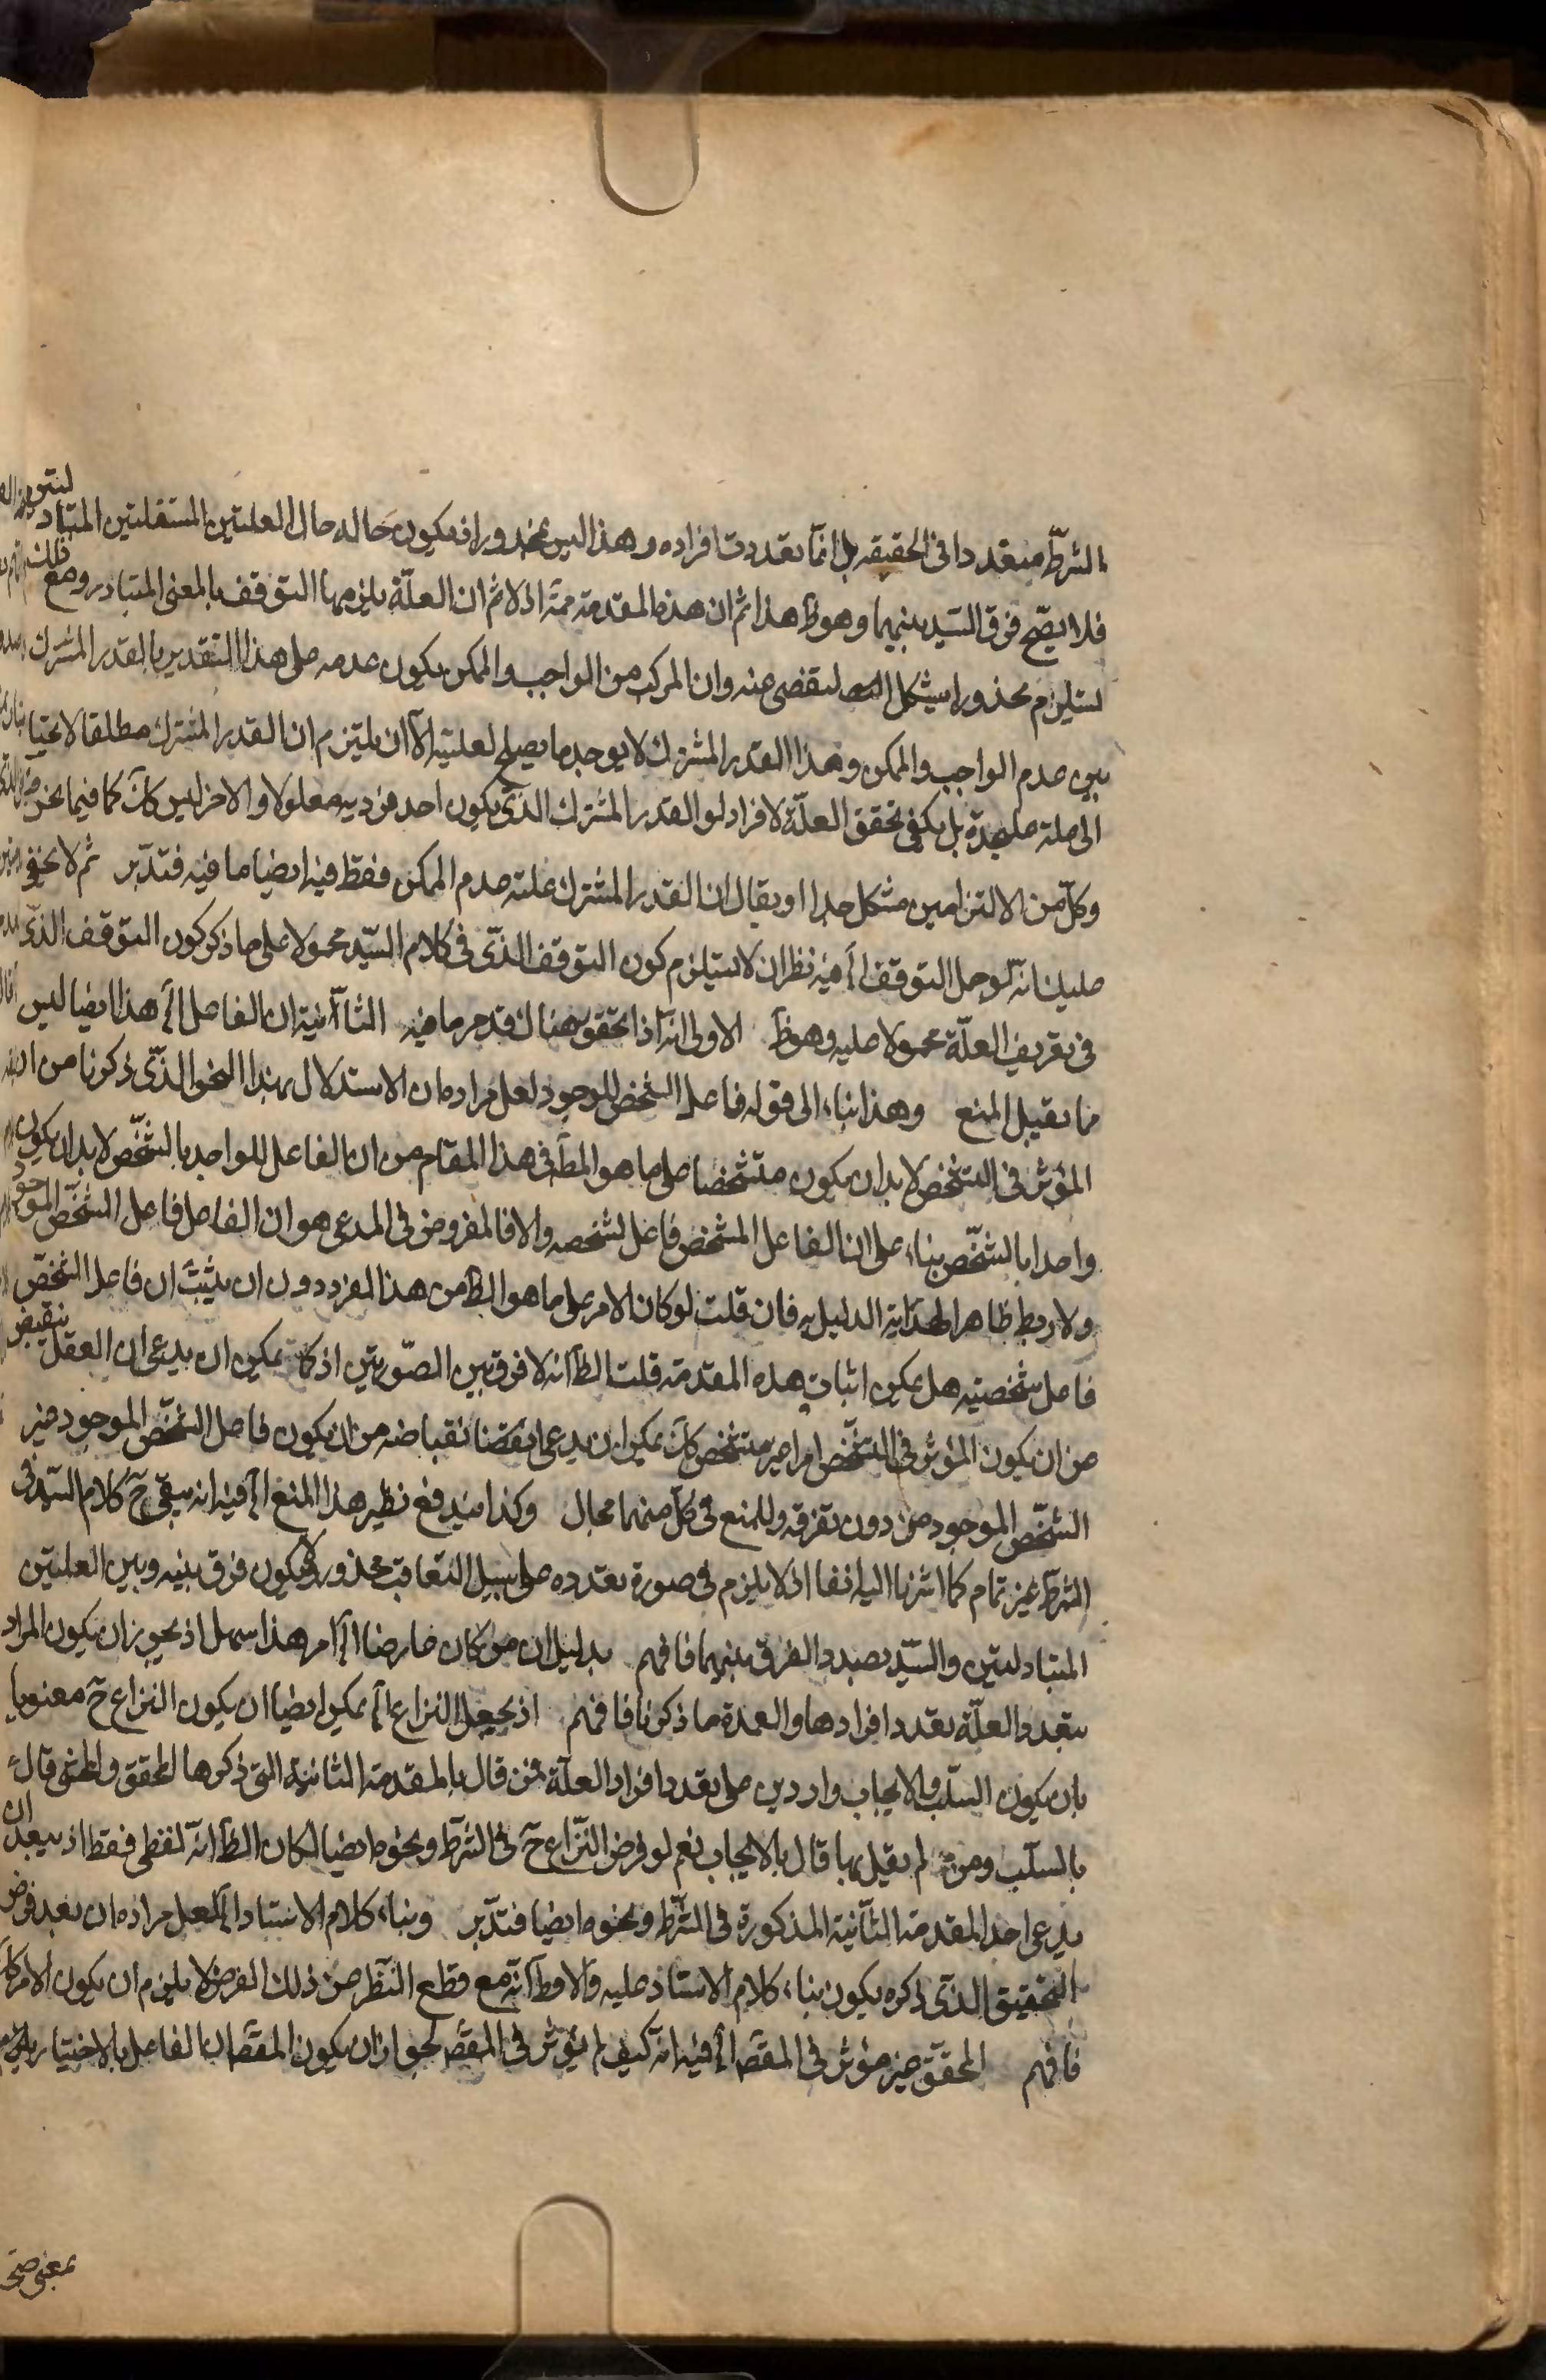 الشرط متعددا فى الحقيقه بل انما تعددت افراده وهذا ليس بمحذور اذ يكون حاله حال العلتين المستقلتين المتبادلتين
فلا يصح فرق السيد بينهما وهو ظ هذا ثم ان هذه المقدمة ممة اذ لا ثم ان العلة يلزمها التوقف بالمعنى المتبادر ومع ذلك
يستلزم محذورا يشكل التفصى عنه وان المركب من الواجب والممكن يكون عدمه على هذا التقدير بالقدر المشترك
بين عدم الواجب والممكن وهذا القدر المشترك لا يوجد ما يصلح لعليته الا ان يلتزم ان القدر المشترك مطلقا لا يحتاج
الى علة عليحدة بل يكفى تحقق العلة لافراده او القدر المشترك الذى يكون احد فرديه معلولا والاخر ليس كك كما فيما نحن
وكل من الالتزامين مشكل جدا او يقال ان القدر المشترك علته عدم الممكن فقط فيه ايضا ما فيه فتدبر ثم لا يخفى
عليك انه لو حمل التوقف الخ فيه نظر اذ لا يستلزم كون التوقف الذى فى كلام السيد محمولا على ما ذكر كون التوقف الذى
فى تعريف العلة محمولا عليه وهو ظ الاولى انه اذا تحقق هناك قد مر ما فيه الثانية ان الفاعل الخ هذا ايضا ليس
مما يقبل المنع وهذا بناء الى قوله فاعل الشخص الموجود لعل مراده ان الاستدلال بهذا النحو الذى ذكرنا من ان
المؤثر فى التشخص لا بد ان يكون متشخصا على ما هو المط فى هذا المقام من ان الفاعل للواحد بالشخص لا بد ان يكون
واحدا بالشخص بناء على ان الفاعل المشخص فاعل لشخصه والا فالمفروض فى المدعى هو ان الفاعل فاعل الشخص الموجود
ولا ربط ظاهرا لهذا الدليل به فان قلت لو كان الامر على ما هو الظ من هذا المفرد دون ان يثبت ان فاعل الشخص
فاعل شخصيته هل يمكن اثبات هذه المقدمة قلت الظ انه لا فرق بين الصورتين اذ كما يمكن ان يدعى ان العقل ينقبض
من ان يكون المؤثر فى التشخص امرا غير متشخص كك يمكن ان يدعى ايضا انقباضه من ان يكون فاعل الشخص الموجود غير
الشخص الموجود من دون تفرقة وللمنع فى كل منهما مجال وكذا يندفع نظير هذا المنع الخ فيه انه يبقى ح كلام السيد فى
الشرط غير تمام كما اشرنا اليه انفا اذ لا يلزم فى صورة تعدده على سبيل التعاقب محذور ولا يكون فرق بينه وبين العلتين
المتبادلتين والسيد بصدد الفرق بينهما فافهم بدليل ان من كان عارضا الخ امر هذا سهل اذ يجوز ان يكون المراد
بتعدد العلة تعدد افرادها والعمدة ما ذكرنا فافهم اذ يجعل النزاع الخ يمكن ايضا ان يكون النزاع ح معنويا
بان يكون السلب والايجاب واردين على تعدد افراد العلة فمن قال بالمقدمة الثانية التى ذكرها المحقق والمحشى قال
بالسلب ومن لم يقل بها قال بالايجاب نعم لو فرض النزاع ح فى الشرط ونحوه ايضا لكان الظ انه لفظى فقط اذ يبعد ان
يدعى احد المقدمة الثانية المذكورة فى الشرط ونحوه ايضا فتدبر وبناء كلام الاستاد الخ لعل مراده ان بعد فرض
التحقيق الذى ذكره يكون بناء كلام الاستاد عليه والا فظ انه مع قطع النظر عن ذلك الفرض لا يلزم ان يكون الامر كك
فافهم المحقق غير مؤثر فى المقص الخ فيه انه كيف لم يؤثر فى المقص لجواز ان يكون المقص ان الفاعل بالاختيار
بمعنى